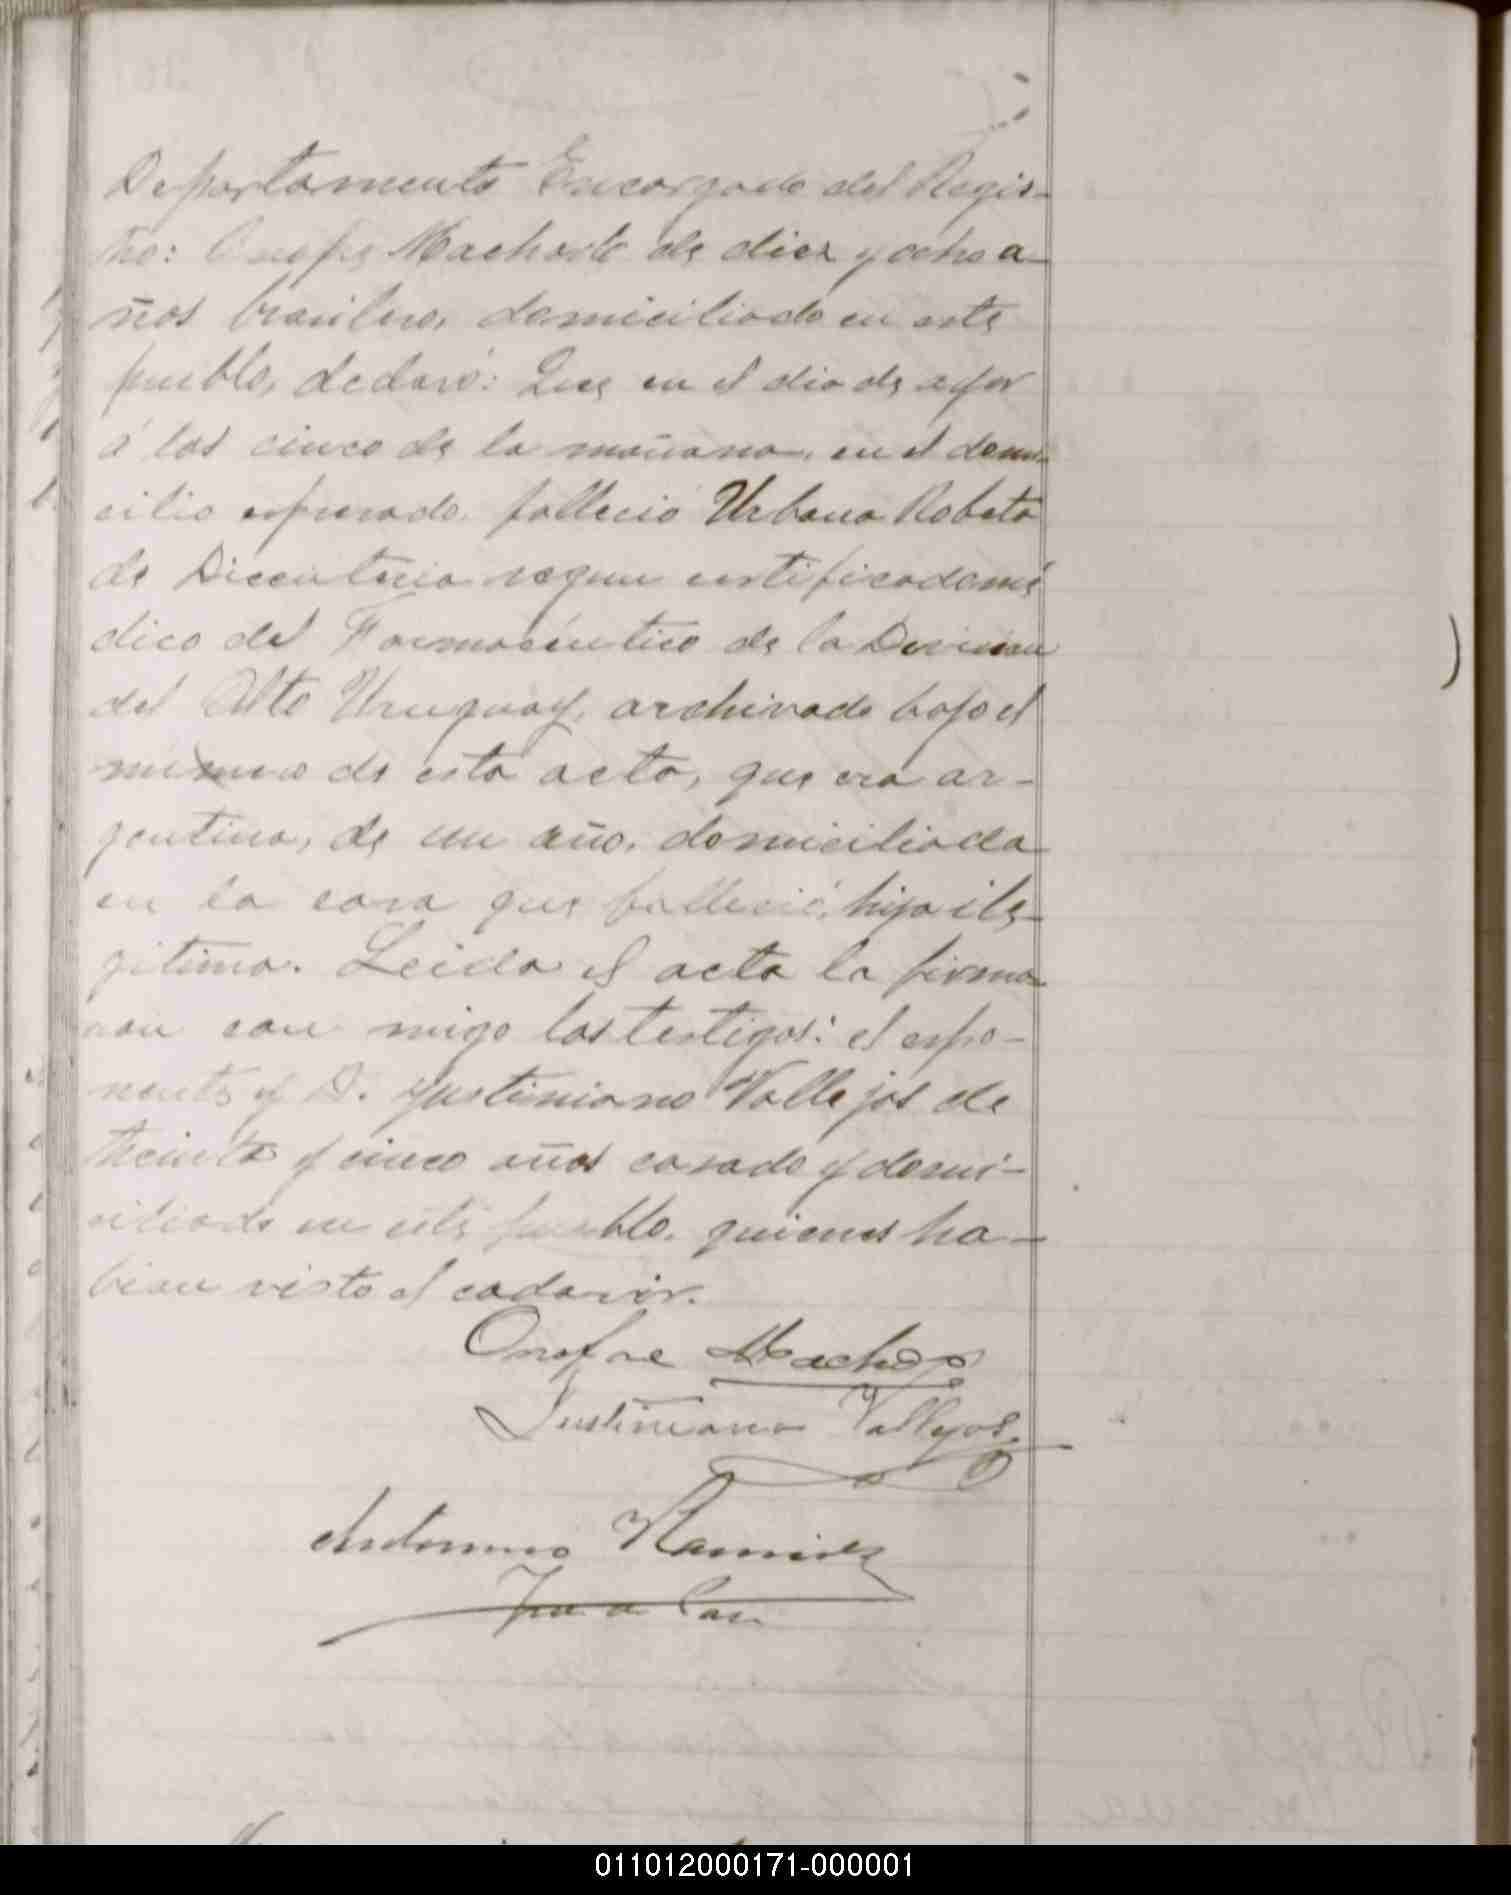 Departamento Encargado del Regis-
tro: Onofre Machado de diez y ocho a-
ños brasilero, domiciliado en este
pueblo, declaró: Que en el dia de ayer
á las cinco de la mañana, en el domi-
cilio espresado falleció Urbana Robeto
de Diccenteria segun certificado mé
dico del Farmacéutico de la Division
del Alto Uruguay, archivado bajo el
número de esta acta, que era ar-
gentina, de un año, domiciliada
en la casa que falleció, hija ile-
gitima. Leida el acta la firma-
ron con migo los testigos: el espo-
nente y D. Justiniano Vallejos de
treinta y cinco años casado y domi-
ciliado en este pueblo, quienes ha-
bian visto el cadaver.
Onofre Machado
Justiniano Vallejos
Antonino Ramirez
011012000171-000001